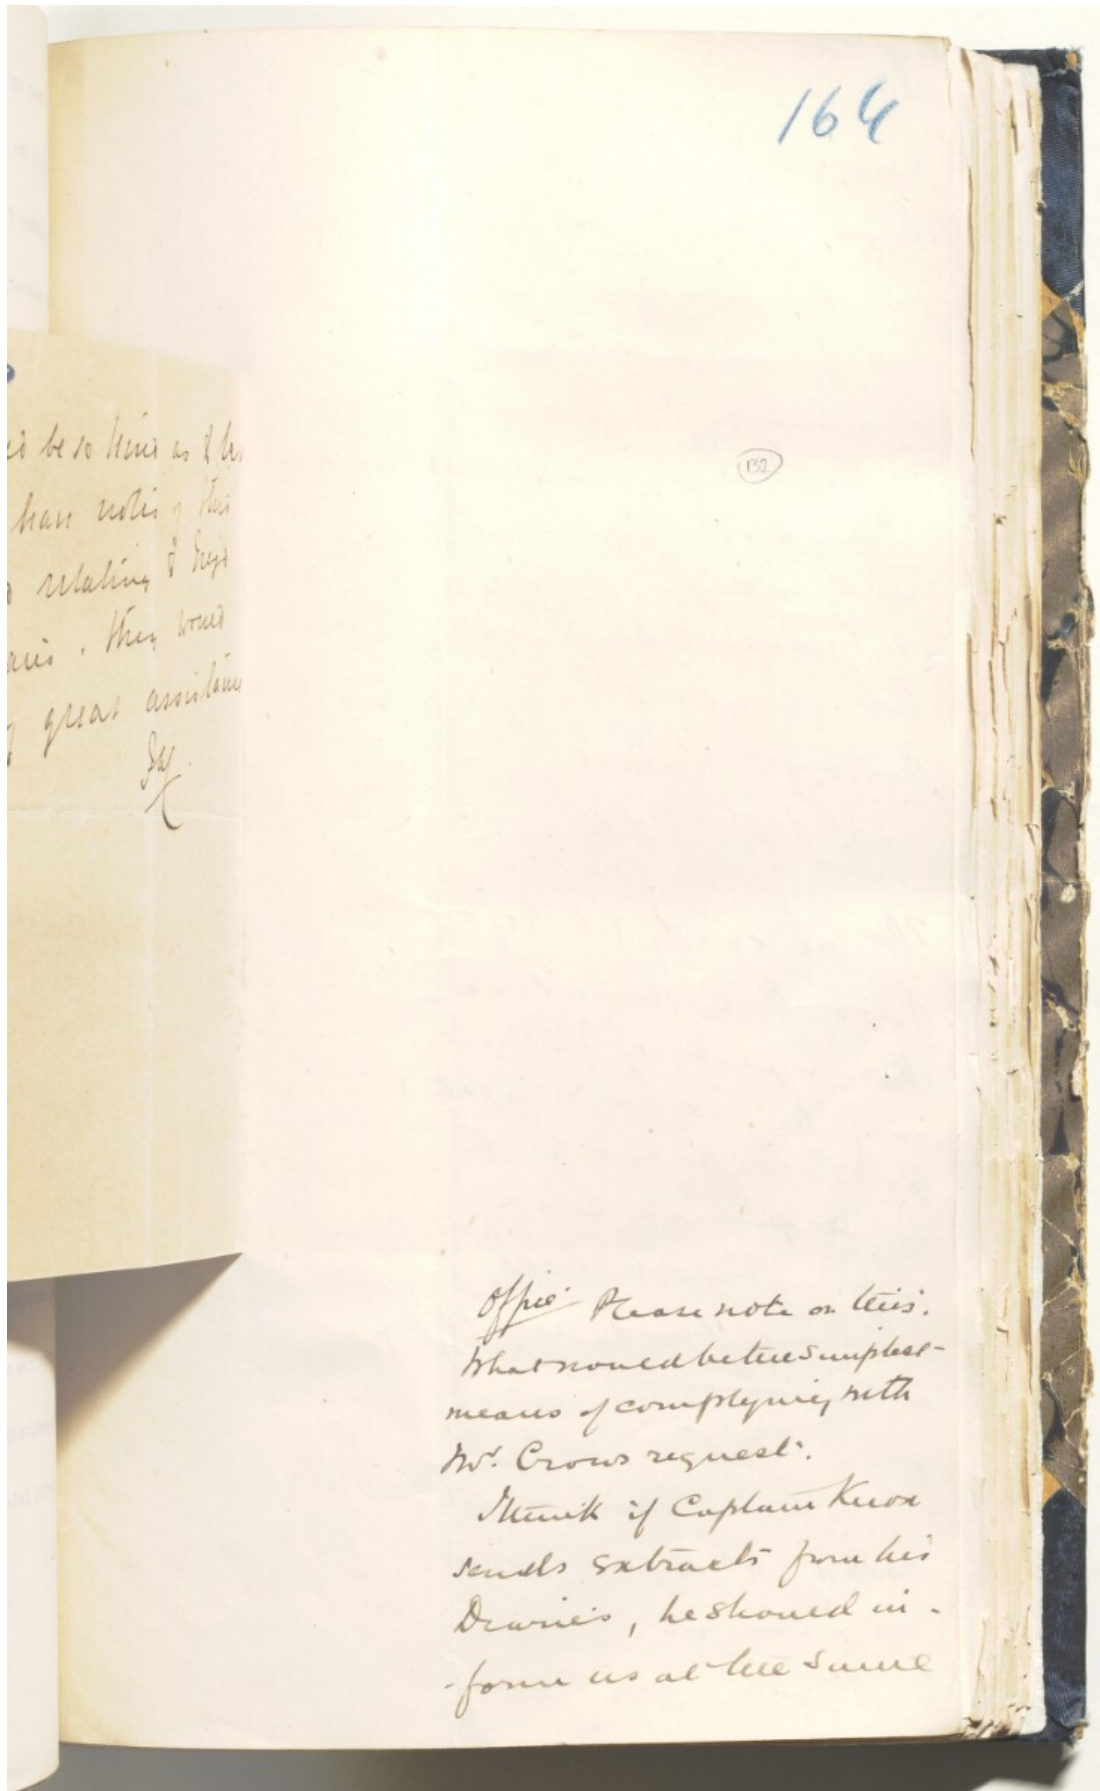 164
132
be so kind as to
have notes of this
relating to Nejd
. They would
great assistance
Office Please note on this.
What would be the simplest
means of complying with
Mr. Crows request.
I think if Captain Knox
sends extracts from his
Diaries, he should in-
-form us at the same